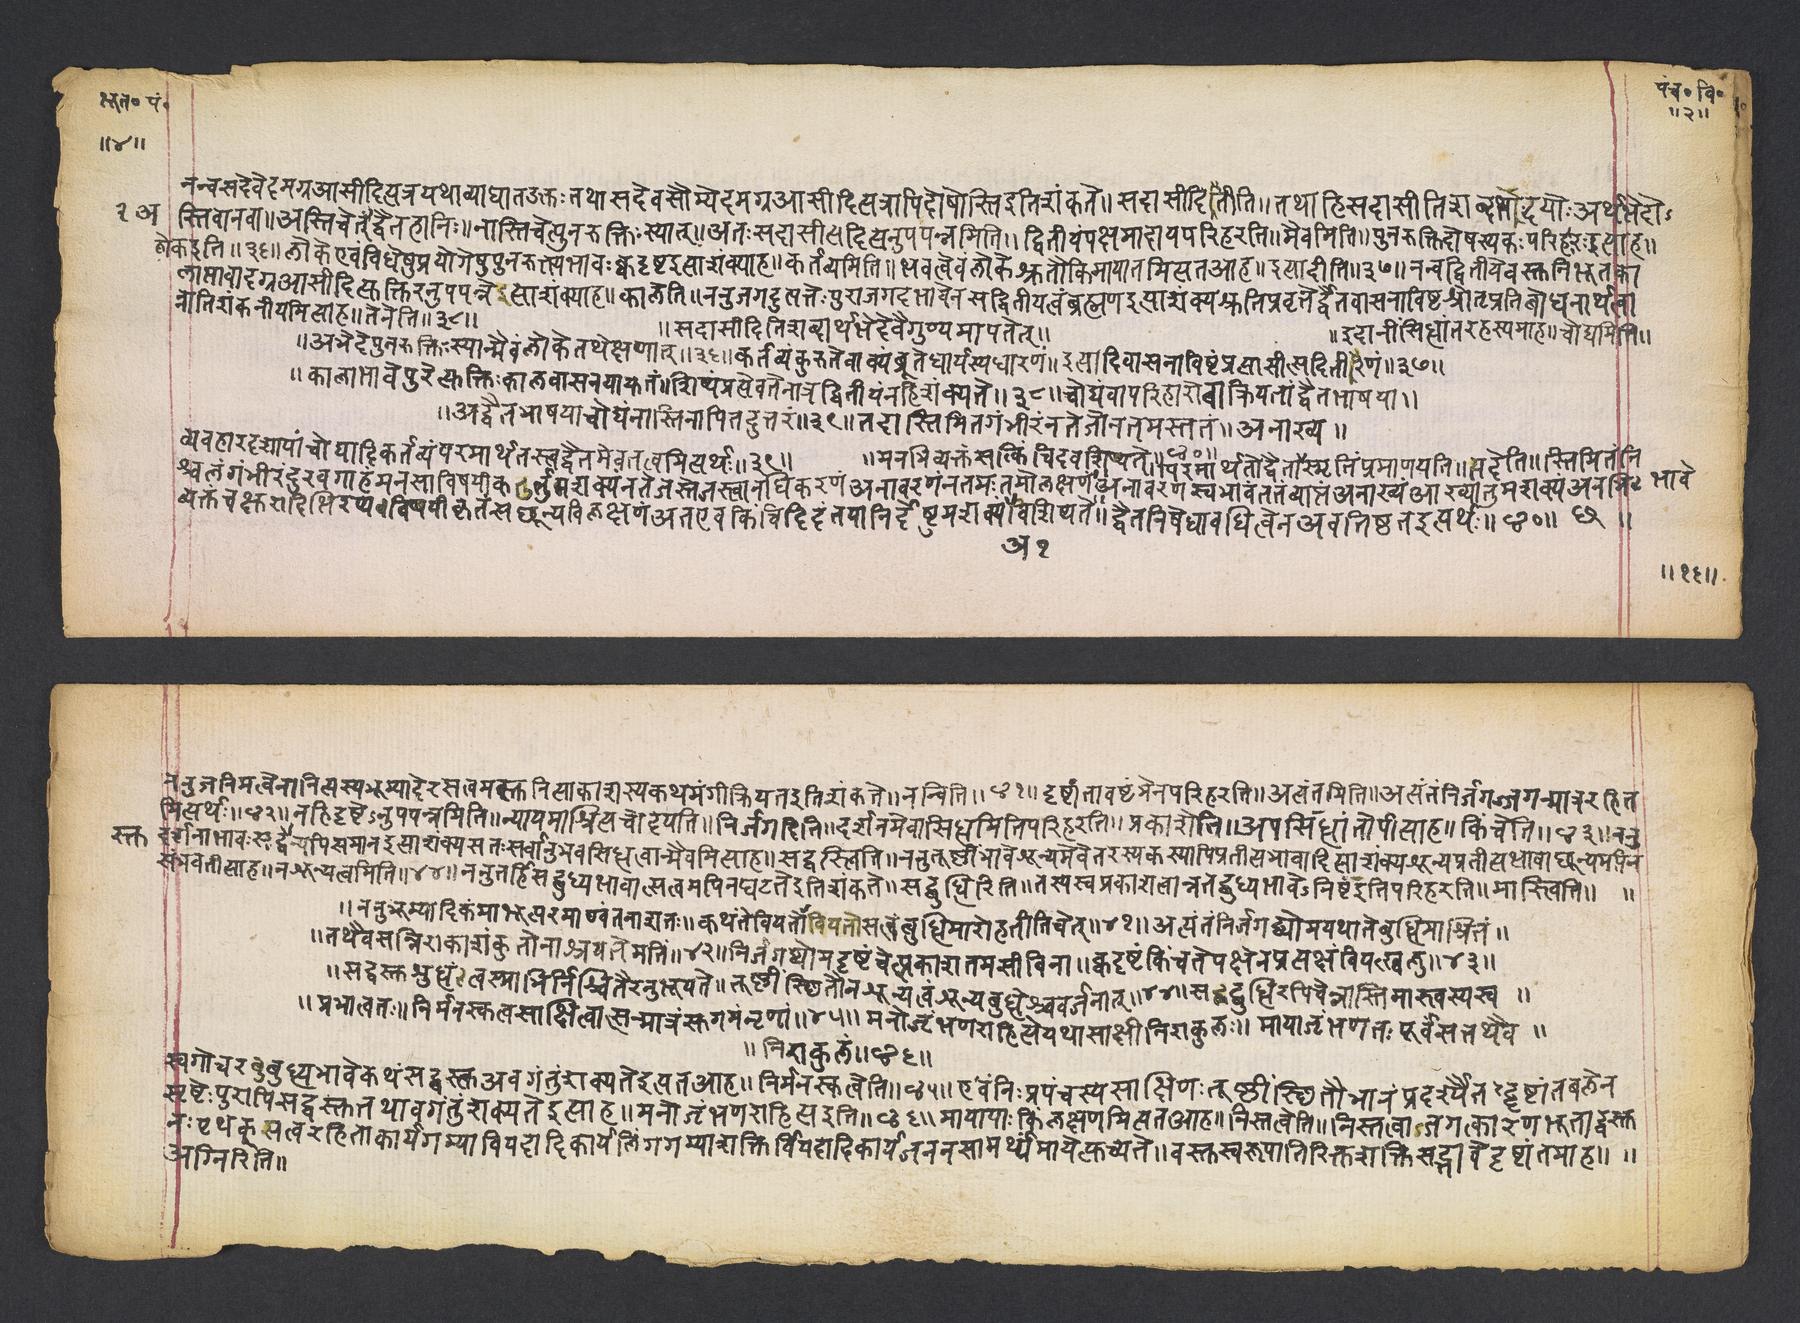 भूत॰ पं॰
॥४॥
पंच॰ वि॰
॥२॥
नन्वसदेवेदमग्रआसीदित्यत्रयथाव्याघातउक्तः तथा सदेवसौम्येदमग्रआसीदित्यत्रापिदोषोस्तिइतिशंकते॥ सदासीदितीति॥ तथाहिसदासीतिशब्दयोः अर्थभेदो
२ अ स्तिवानवा॥ अस्तिचेत् द्वैतहानिः॥ नास्तिचेत्पुनरुक्तिः स्यात्॥ अतः सदासीत्यदित्यनुपपन्नमिति॥ द्वितीयंपक्षमादायपरिहरति॥ मैवमिति॥ पुनरुक्तिदोषस्यकः परिहारः इत्याह॥
लोकइति॥ ३६॥ लोके एवंविधेषुप्रयोगेषुपुनरुक्त्यभावः क्वदृष्टइत्याशंक्याह॥ कर्तव्यमिति॥ भवत्वेवंलोकेश्रुतौकिमायातमित्यतआह॥ इत्यादीति॥ ३७॥ नन्वद्वितीयेवस्तुनिभूतका
लाभावादग्रआसीदित्युक्तिरनुपपन्नेत्याशंक्याह॥ कालेति॥ ननुजगदुत्पत्तेः पुराजगदभावेनसद्वितीयत्वंब्रह्मणइत्याशंक्यश्रुतिप्रवृत्तेर्द्वैतवासनाविष्टश्रोतृप्रतिबोधनार्थत्वा
न्नातिशंकनीयमित्याह॥ तेनेति॥ ३८॥
॥ सदासीदितिशब्दार्थभेदेवैगुण्यमापतेत्॥
॥ इदानींसिद्धांतरहस्यमाह॥ चोद्यमिति॥
॥ अभेदेपुनरुक्तिः स्यान्मैवंलोकेतथेक्षणात्॥ ३६॥ कर्तव्यंकुरुतेवाक्यंब्रूतेधार्यस्यधारणं॥ इत्यादिवासनाविष्टंप्रत्यासीत्सदितीरणं॥ ३७॥
॥ कालाभावेपुरेत्युक्तिः कालवासनयायुतं॥ शिष्यंप्रत्येवतेनात्रद्वितीयंनहिशंक्यते॥ ३८॥ चोद्यंवापरिहारोवाक्रियतांद्वैतभाषया॥
॥ अद्वैतभाषयाचोद्यंनास्तिनापितदुत्तरं॥ ३९॥ तदास्तिमितगंभीरंनतेजोनतमस्ततं॥ अनाख्य ॥
व्यवहारदशायांचोद्यादिकर्तव्यंपरमार्थतस्त्वद्वैतमेवतत्त्वमित्यर्थः॥ ३९॥
॥ मनभिव्यक्तंसत्किंचिदवशिष्यते॥ ४०॥
परमार्थतोद्वैताभावेस्मृतिंप्रमाणयति॥ तदेति॥ स्तिमितंनि
श्चलंगंभीरंदुरवगाहंमनसाविषयीकर्तुमशक्यनतेजस्तेजस्त्वानधिकरणंअनावरणंनतमः तमोलक्षणंअनावरणस्वभावंततंव्याप्तंअनाख्यंआख्यातुमशक्यंअनभि भावे
व्यक्तंचक्षुरादिभिरप्यविषयीकृतंसत्शून्यविलक्षणंअतएवकिंचिदिदंतयानिर्देष्टुमशक्यंशिष्यते॥ द्वैतनिषेधावधित्वेनअवतिष्ठतइत्यर्थः॥ ४०॥ छ ॥
अ १
॥१६॥
ननुजनिमत्वेनानित्यस्यभूम्यादेरसत्वमस्तुनित्याकाशस्यकथमंगीक्रियतइतिशंकते॥ नन्विति॥ ४१॥ दृष्टांतावष्टंभेनपरिहरति॥ अत्यंतमिति॥ अत्यंतंनिर्जगज्जगन्मात्ररहित
मित्यर्थः॥ ४२॥ नहिदृष्टेऽनुपपन्नमिति॥ न्यायमाश्रित्यचोदयति॥ निर्जगदिति॥ दर्शनमेवासिद्धमितिपरिहरति॥ प्रकाशेति॥ अपसिद्धांतोपीत्याह॥ किंचेति॥ ४३॥ ननु
स्तु दर्शनाभावः सद्वस्तुन्यपिसमानइत्याशंक्यसतः सर्वानुभवसिद्धत्वान्मैवमित्याह॥ सद्वस्त्विति॥ ननुतूष्णींभावेशून्यमेवेतरस्यकस्यापिप्रतीत्यभावादित्याशंक्यशून्यप्रतीत्यभावाच्छून्यमपिन
संभवतीत्याह॥ नशून्यत्वमिति॥ ४४॥ ननुतर्हिसद्बुध्यभावात्सत्वमपिनघटतेइतिशंकते॥ सद्बुधिरिति॥ तस्यस्वप्रकाशत्वान्नतद्बुध्यभावेऽनिष्टंइतिपरिहरति॥ मास्त्विति॥ ॥
॥ ननुभूम्यादिकंमाभूत्परमाण्वंतनाशतः॥ कथंतेवियतोवियतोसत्वंबुधिमारोहतीतिचेत्॥ ४१॥ अत्यंतंनिर्जगद्व्योमयथातेबुधिमाश्रितं॥
॥ तथैवसन्निराकाशंकुतोनाश्रयतेमतिं॥ ४२॥ निर्जगद्व्योमदृष्टंचेत्प्रकाशतमसीविना॥ क्वदृष्टंकिंचतेपक्षेनप्रत्यक्षंवियत्खलु॥ ४३॥
॥ सद्वस्तुशुद्धंत्वस्माभिर्निश्चितैरनुभूयते॥ तूष्णींस्थितौनशून्यत्वंशून्यबुधेश्चवर्जनात्॥ ४४॥ सद्बुधिरपिचेन्नास्तिमास्त्वस्यस्व ॥
॥ प्रभात्वतः॥ निर्मनस्कत्वसाक्षित्वात्सन्मात्रंसुगमंनृणां॥ ४५॥ मनोजृंभणराहित्येयथासाक्षीनिराकुलः॥ मायाजृंभणतः पूर्वंसत्तथैव ॥
॥ निराकुलं॥ ४६॥
स्वगोचरबुबुध्यभावेकथंसद्वस्तुअवगंतुंशक्यतेइत्यतआह॥ निर्मनस्कत्वेति॥ ४५॥ एवंनिः प्रपंचस्यसाक्षिणः तूष्णींस्थितौभानंप्रदर्श्यैतद्दृष्टांतबलेन
सृष्टेः पुरापिसद्वस्तुतथावगंतुंशक्यतेइत्याह॥ मनोजृंभणराहित्यइति॥ ४६॥ मायायाः किंलक्षणमित्यतआह॥ निस्तत्वेति॥ निस्तत्वाजगत्कारणभूताद्वस्तु
नः पृथक्सत्वरहिताकार्यगम्यावियदादिकार्यलिंगगम्याशक्तिर्वियदादिकार्यजननसामर्थ्यंमायेत्युच्यते॥ वस्तुस्वरूपातिरिक्तशक्तिसद्भावेदृष्टांतमाह॥ ॥
अग्निरिति॥